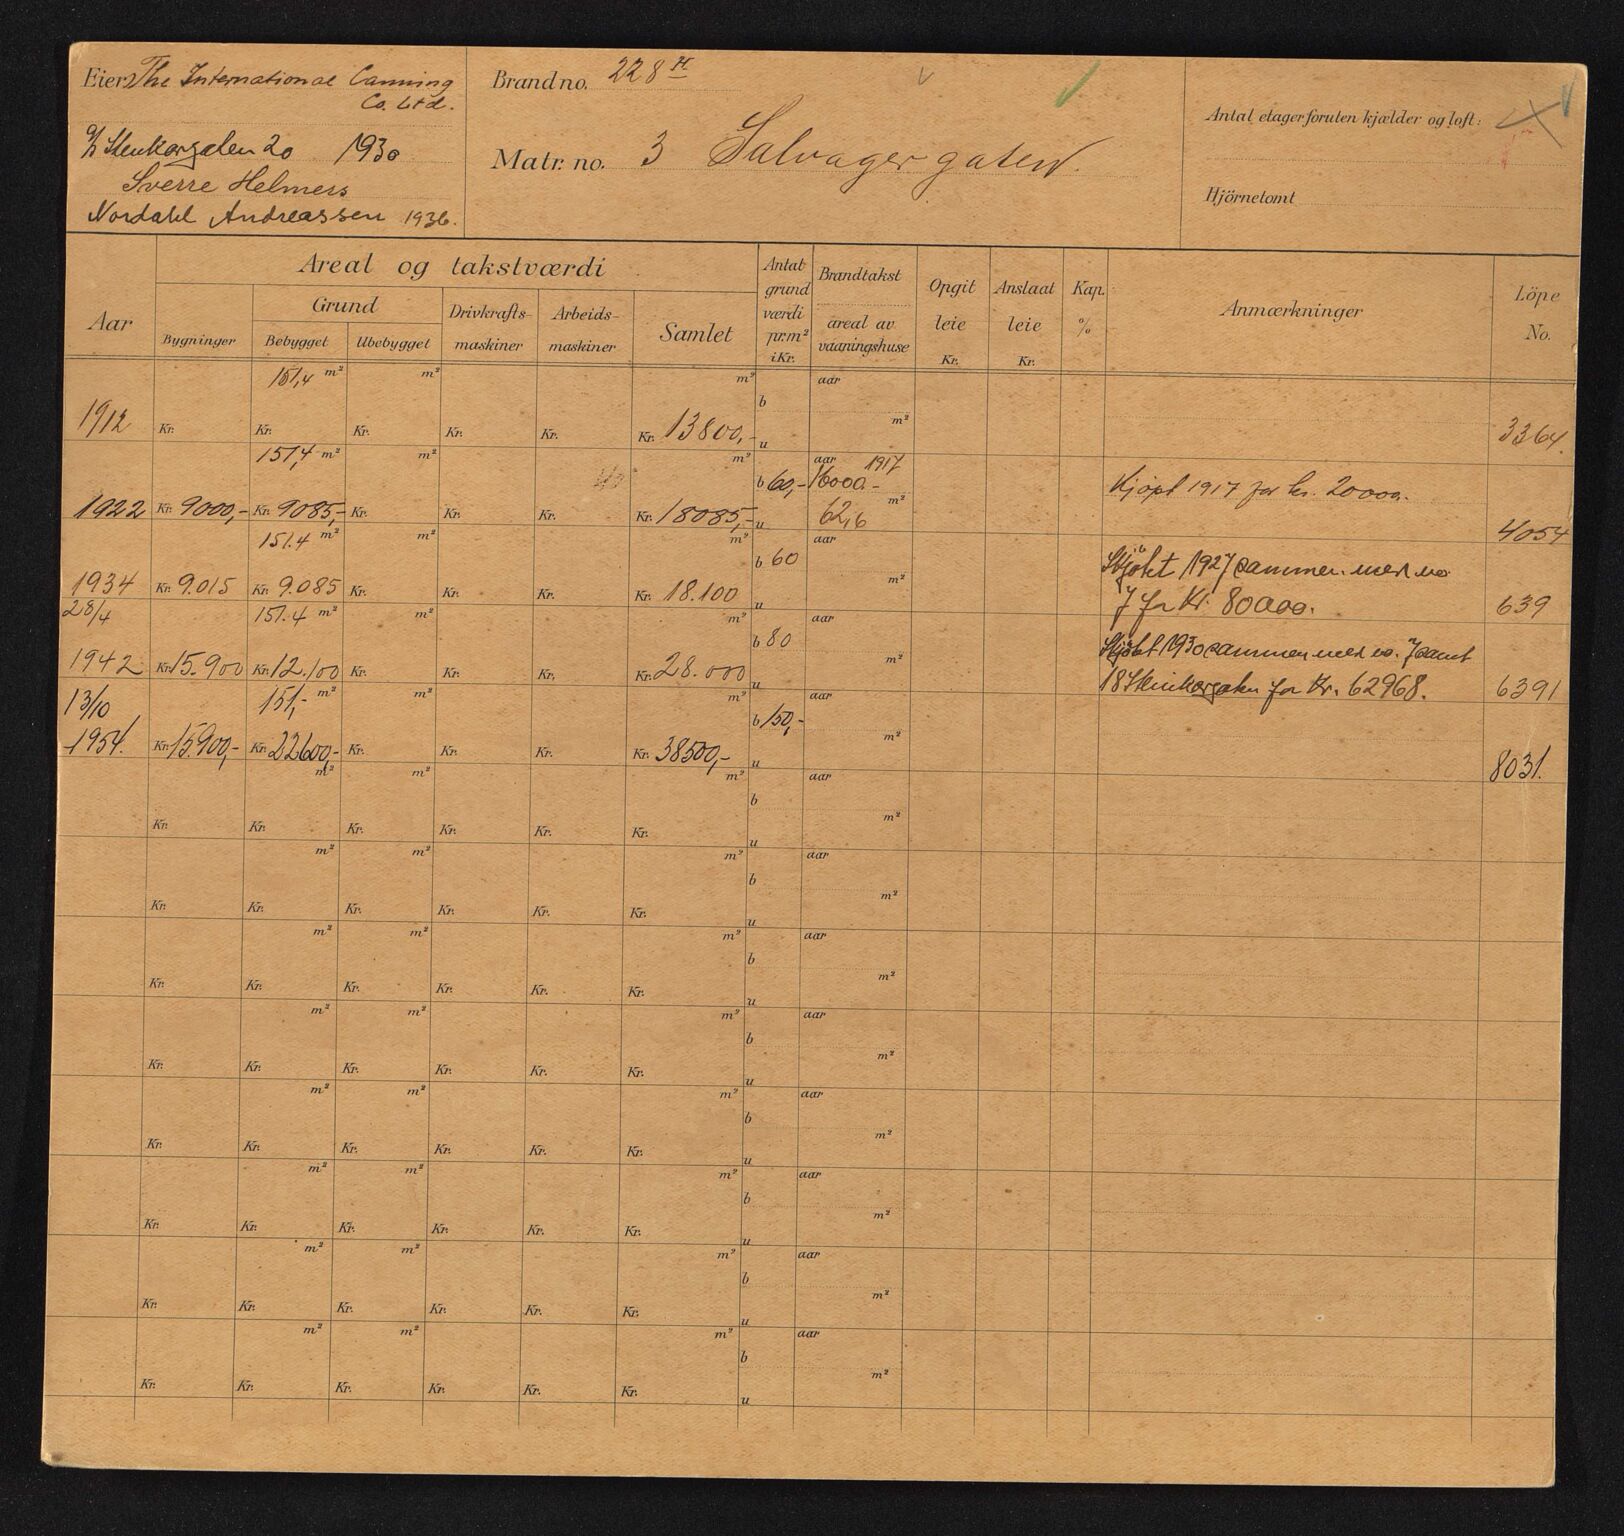 Eier: The International Canning
Co. Ltd.
A/S Stenkargaten 20 1930
Sverre Helmers
Nordahl Andreassen 1936.
Brand no. 228 H
Matr. no. 3 Salvagergaten.
Antal etager foruten kjælder og loft:
Hjörnetomt
Aar
Areal og takstværdi
Bygninger
Grund
Bebygget
Ubebygget
Drivkrafts-
maskiner
Arbeids-
maskiner
Samlet
Antat
grund
værdi
pr.m²
i Kr.
Brandtakst
areal av
vaaningshuse
Opgit
leie
Kr.
Anslaat
leie
Kr.
Kap.
%
Anmærkninger
Löpe
No.
151,4 m² m² m² aar
1912 Kr. Kr. Kr. Kr. Kr. Kr. 13800,- b u m² 3364.
151,4 m² m² m² aar 1917
b 60,- 16000.- Kjöpt 1917 for kr. 20000.
1922 Kr. 9000,- Kr. 9085,- Kr. Kr. Kr. Kr. 18085,- u 62,6 m² 4054
151.4 m² m² m² aar
b 60 Skjøtet 1927 sammen med no.
1934 Kr. 9.015 Kr. 9.085 Kr. Kr. Kr. Kr. 18.100 u m² 7 for Kr. 80000. 639
28/4 151.4 m² m² m² aar
b 80 Skjøtet 1930 sammen med no. 7 samt
1942 Kr. 15.900 Kr. 12.100 Kr. Kr. Kr. Kr. 28.000 u m² 18 Stenkargaten for Kr. 62968. 6391
13/10 151,- m² m² m² aar
b 150,-
1954. Kr. 15.900,- Kr. 22600,- Kr. Kr. Kr. Kr. 38500,- u m² 8031.
m² m² m² aar
b m²
Kr. Kr. Kr. Kr. Kr. Kr. u
m² m² m² aar
b m²
Kr. Kr. Kr. Kr. Kr. Kr. u
m² m² m² aar
b m²
Kr. Kr. Kr. Kr. Kr. Kr. u
m² m² m² aar
b m²
Kr. Kr. Kr. Kr. Kr. Kr. u
m² m² m² aar
b m²
Kr. Kr. Kr. Kr. Kr. Kr. u
m² m² m² aar
b m²
Kr. Kr. Kr. Kr. Kr. Kr. u
m² m² m² aar
b m²
Kr. Kr. Kr. Kr. Kr. Kr. u
m² m² m² aar
b m²
Kr. Kr. Kr. Kr. Kr. Kr. u